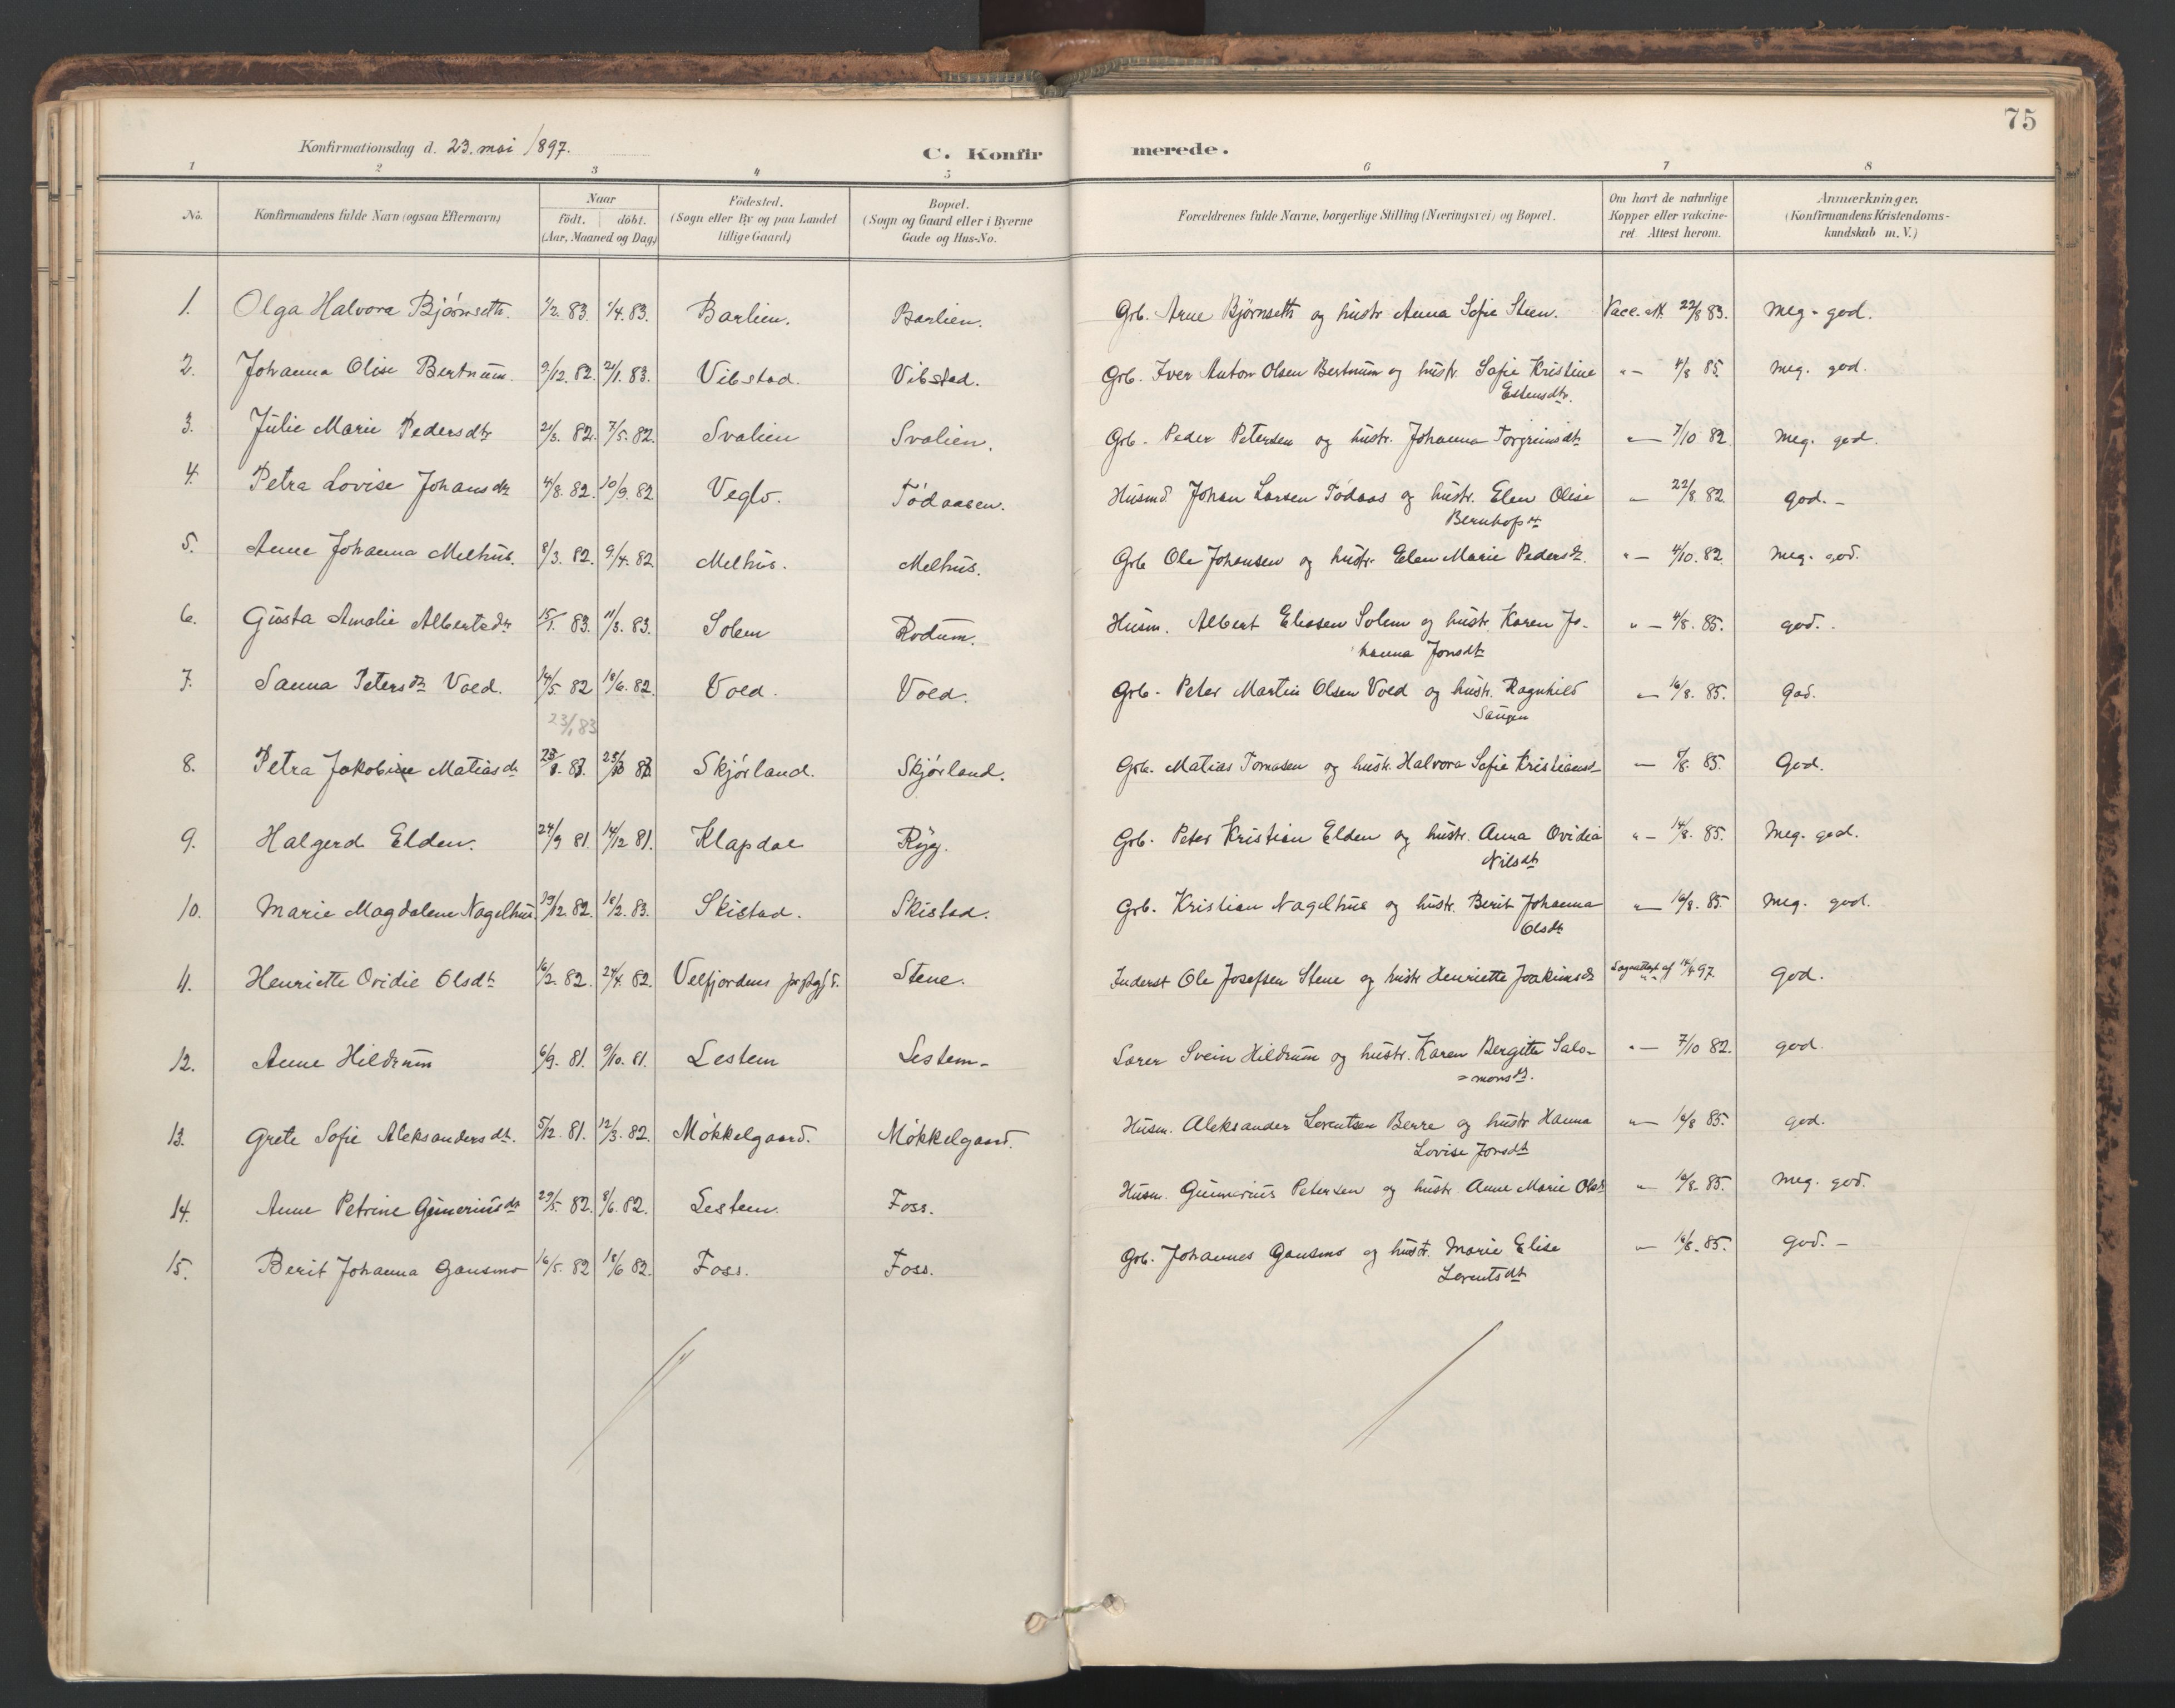 75
Konfirmationsdag d. 23. mai 1897.
C. Konfirmerede.
1 2 3 4 5 6 7 8
No.
Konfirmandens fulde Navn (ogsaa Efternavn)
Naar
födt. döbt.
(Aar, Maaned og Dag)
Födested.
(Sogn eller By og paa Landet
tillige Gaard)
Bopæl.
(Sogn og Gaard eller i Byerne
Gade og Hus-No.
Forældrenes fulde Navne, borgerlige Stilling (Næringsvei) og Bopæl.
Om havt de naturlige
Kopper eller vakcine-
ret. Attest herom.
Anmærkninger.
(Konfirmandens Kristendoms-
kundskab m. V.)
1. Olga Halvora Bjørnseth. 1/2. 83. 1/4. 83. Barlien. Barlien. Grb. Arne Bjørnseth og hustr Anna Sofie Steen. Vacc. att. 22/8 83. Meg. god.
2. Johanna Olise Bertnum. 9/12. 82. 21/1. 83. Vibstad. Vibstad. Grb. Iver Anton Olsen Bertnum og hustr. Sofie Kristine " — 4/8 85. Meg. god.
Estensdtr.
3. Julie Marie Pedersdtr 21/3. 82. 7/5. 82. Svalien Svalien. Grb. Peder Petersen og hustr. Johanna Torgrimsdt " — 7/10 82. Meg. god.
4. Petra Lovise Johansdtr 4/8. 82. 10/9. 82 Veglo. Tödaasen. Husmd Johan Larsen Tödaas og hustr. Elen Olise " 22/8 82. god. —
Bernhofsdt
5. Anne Johanna Melhus. 8/3. 82. 9/4. 82 Melhus. Melhus. Grb Ole Johansen og hustr. Elen Marie Pedersdt. " — 4/10. 82. Meg. god.
6. Gusta Amalie Albertsdtr 15/1. 83. 11/3. 83. Solem Rodum. Husm. Albert Eliasen Solem og hustr. Karen Jo- " — 4/8. 85. god.
hanna Jonsdt
7. Sanna Petersdtr Vold. 14/5 82 18/6. 82. Vold. Vold. Grb. Peter Martin Olsen Vold og hustr. Ragnhild " 16/8. 85. god.
Saugen
23/1 83
8. Petra Jakobine Matiasdt Skjörland. Skjörland. Grb. Matias Tomasen og hustr. Halvora Sofie Kristiansd " 85. God.
9. Halgerd Elden. 24/9 81. 14/12 81. Klapdal Ryg. Grb. Peter Kristian Elden og hustr. Anna Ovidia " — 14/8. 85. Meg. god.
Nilsdt
10. Marie Magdalene Nagelhus 19/12. 82. 18/2. 83. Skistad. Skistad. Grb. Kristian Nagelhus og hustr. Berit Johanna " — 16/8. 85. Meg. god.
Olsdt
11. Henriette Ovidie Olsdt 16/2. 82. 24/4. 82. Velfjordens prstgjd. Stene. Inderst Ole Josefsen Stene og hustr Henriette Joakimsdt Sognattest af 14/4 97. God.
12. Anne Hildrum 6/9. 81. 9/10. 81. Lestem Lestem. Lærer Svein Hildrum og hustr. Karen Bergitte Salo- " — 7/10 82. god.
= monsdt.
13. Grete Sofie Aleksandersdt. 5/12. 81. 12/3. 82. Mökkelgaard. Mökkelgaard. Husm. Aleksander Lorentsen Berre og hustr Hanna " 16/8 85. god.
Lovise Jonsdt
14. Anne Petrine Gunneriusdt 29/5. 82. 8/6. 82. Lestem. Foss. Husm. Gunnerius Petersen og hustr. Anne Marie Olsdt " 16/8. 85. Meg. god.
15. Berit Johanna Gansmo 16/5. 82 18/6 82. Foss. Foss. Grb. Johannes Gansmo og hustr. Marie Elise " 16/8. 85. god. —
Lorentsdt